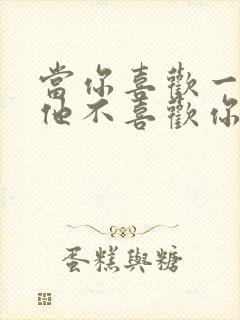 當你喜歡一
他不喜歡你
蛋糕與糖